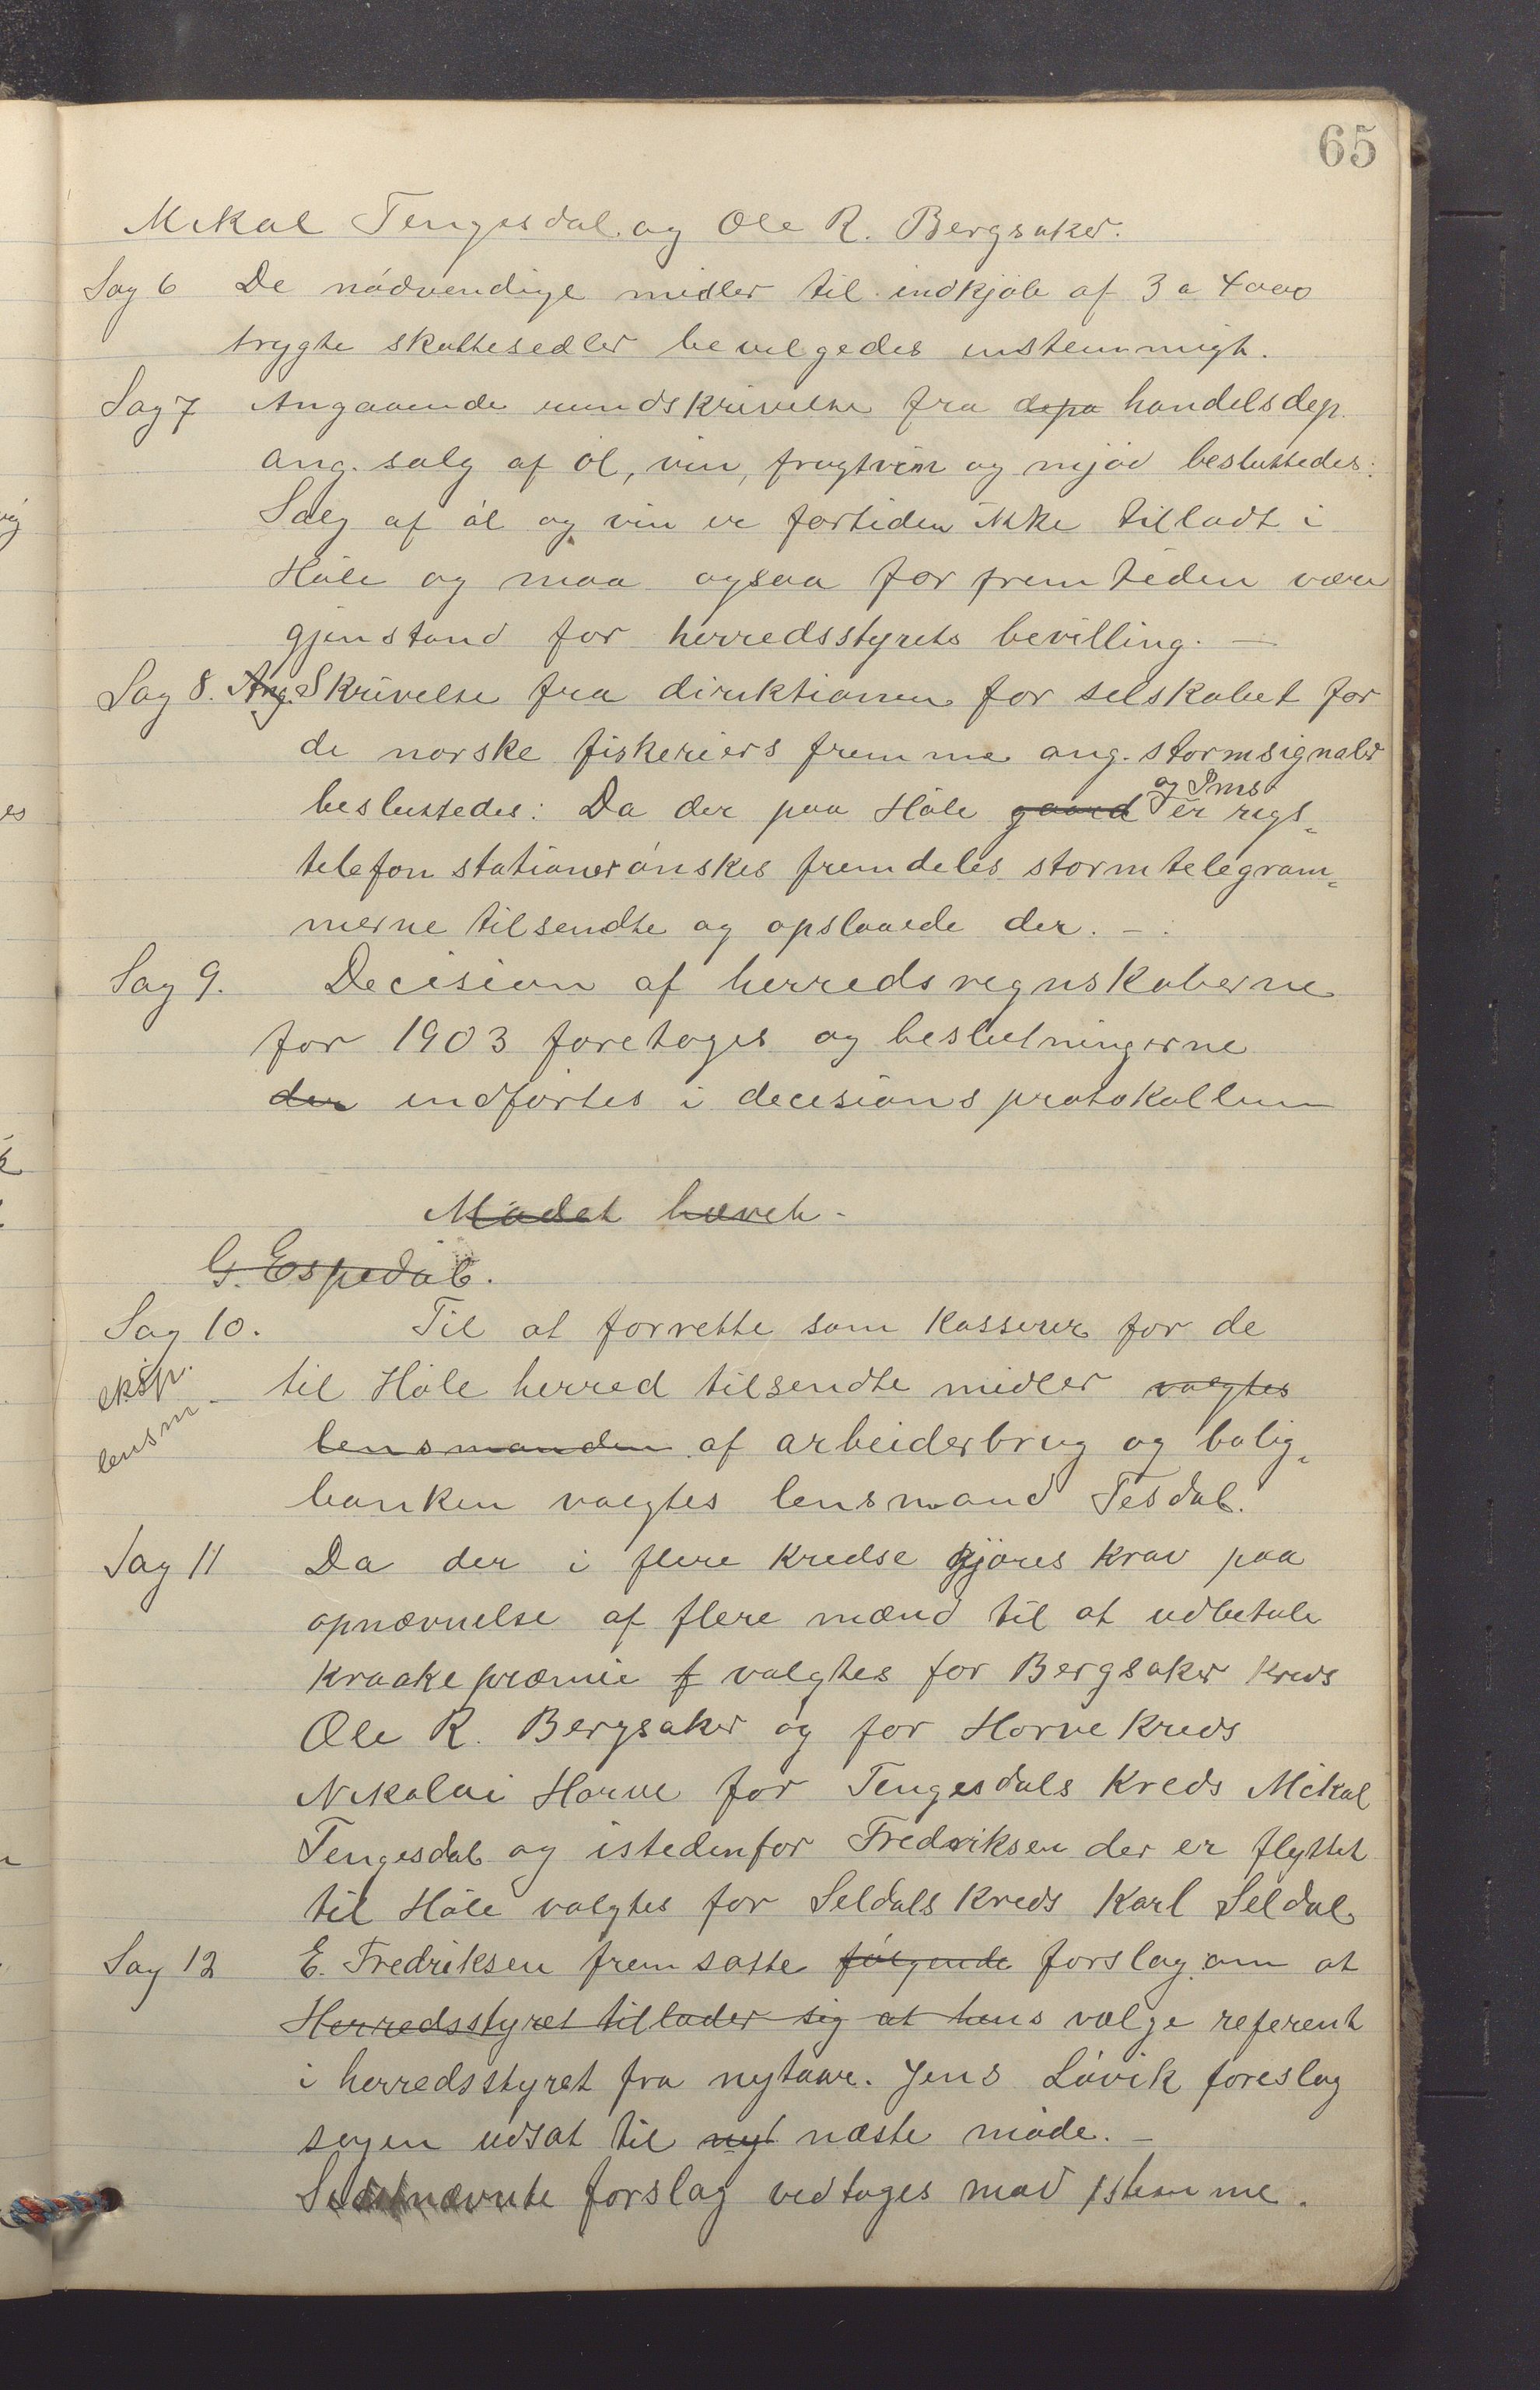 65
Mikal Tengesdal og Ole R. Bergsaker.
Sag 6 De nødvendige midler til indkjøb af 3 a 4000
trygte skattesedler bevilgedes enstemmigt.
Sag 7 Angaaende rundskrivelse fra depa handelsdep.
ang. salg af øl, vin, frugtvin og mjød besluttedes:
Salg af øl og vin er fortiden ikke tilladt i
Høle og maa ogsaa for fremtiden være
gjenstand for herredsstyrets bevilling. —
Sag 8. Ang. Skrivelse fra direktionen for selskabet for
de norske fiskeriers fremme ang. stormsignaler
og Ims
besluttedes: Da der paa Høle gaard er rigs-
telefon stationer ønskes fremdeles stormtelegram-
merne tilsendte og opslaaede der. —
Sag 9. Decision af herredsregnskaberne
for 1903 foretoges og beslutningerne
der indførtes i decisionsprotokollen
Mødet hævet.
G. Espedal.
Sag 10. Til at forrette som kasserer for de
eksp. til Høle herred tilsendte midler valgtes
lensm. lensmanden af arbeiderbrug og bolig-
banken valgtes lensmand Tesdal.
Sag 11 Da der i flere kredse gjøres krav paa
opnævnelse af flere mænd til at udbetale
kraakepræmie f valgtes for Bergsaker kreds
Ole R. Bergsaker og for Horve kreds
Nikolai Horve for Tengesdals kreds Mikal
Tengesdal og istedenfor Fredriksen der er flyttet
til Høle valgtes for Seldals kreds Karl Seldal
Sag 12 E. Fredriksen fremsatte følgende forslag om at
Herredsstyret tillader sig at hens vælge referent
i herredsstyret fra nytaar. Jens Løvik foreslog
sagen udsat til nyt næste møde. —
Sidstnævnte forslag vedtoges mod 1 stemme.